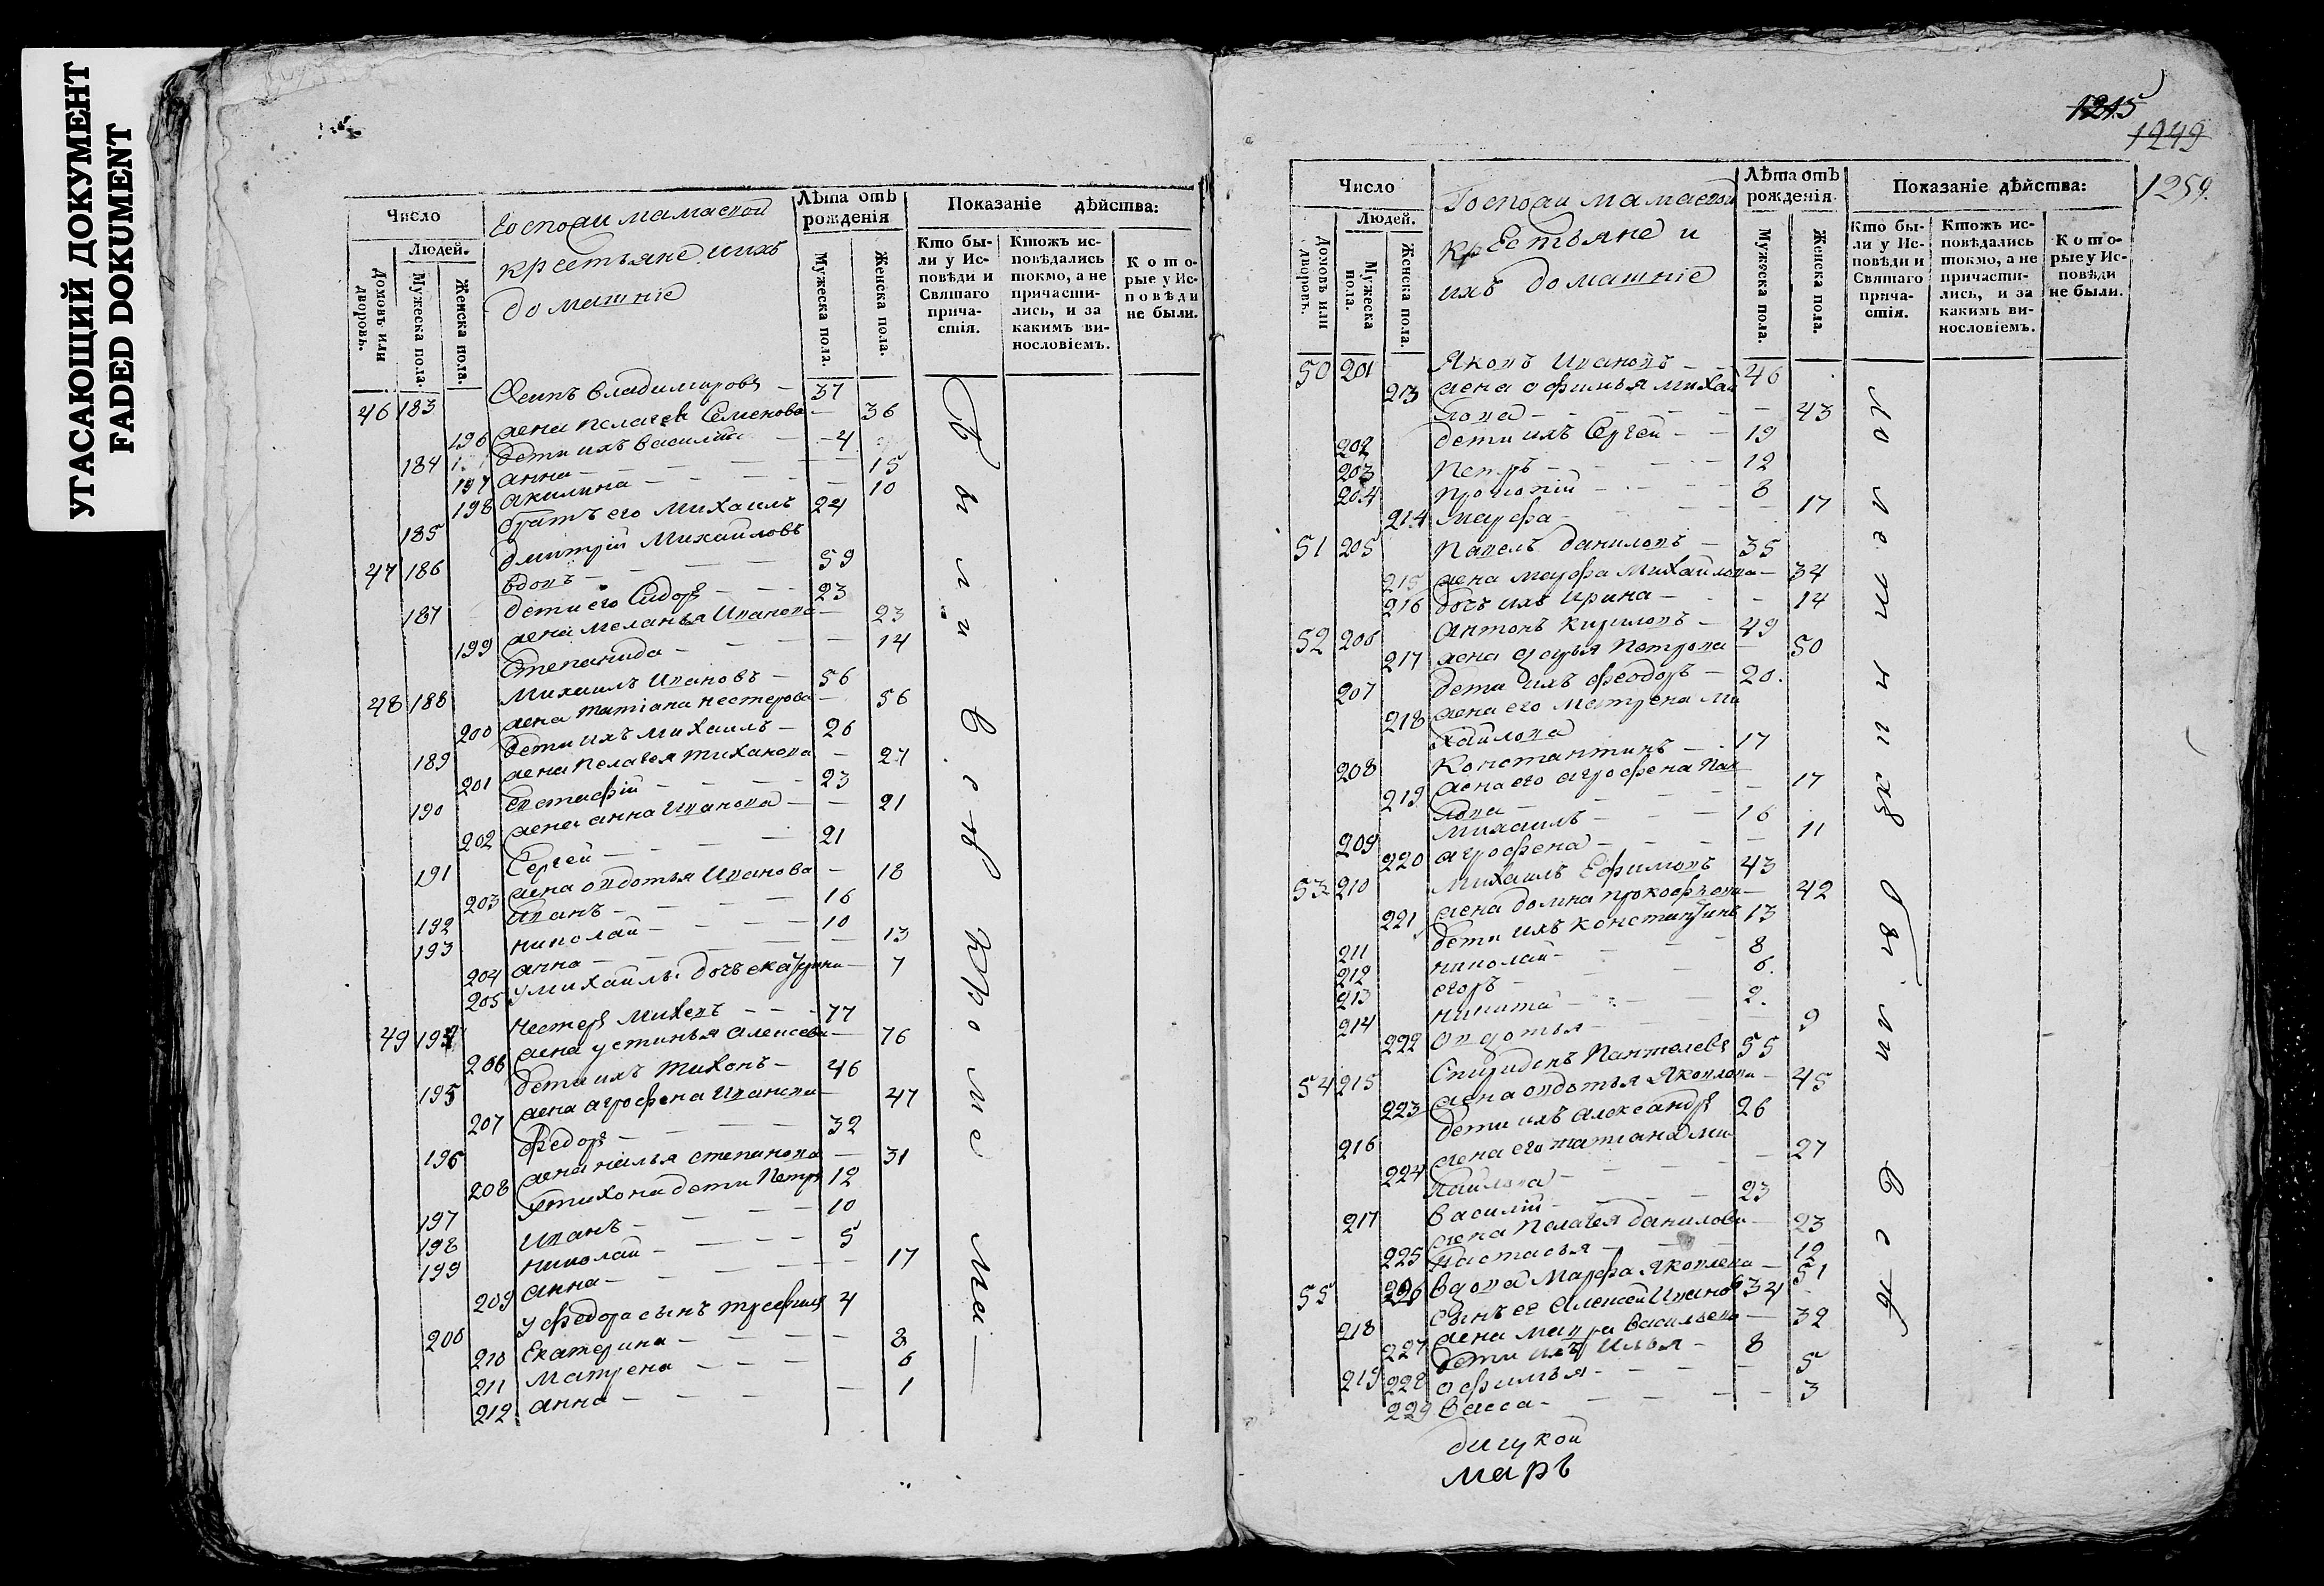 УГАСАЮЩИЙ ДОКУМЕНТ
FADED DOKUMENT
Число
Людей.
Домовъ или дворовъ.
Мужеска пола.
Женска пола.
крестьяне ихъ
домашніе
Лѣта отъ рожденія
Мужеска пола.
Женска пола.
Показаніе дѣйства:
Кто бы-
ли у Ис-
повѣди и
Святаго
прича-
стія.
Ктожъ ис-
повѣдались
токмо, а не
причасти-
лись, и за
какимъ ви-
нословіемъ.
К о т о-
рые у Ис-
п о в ѣ д и
не были.
46 183 Владимировъ - 37
196 жена Пелагея Семенова - 36
184 дети ихъ Василий - 4
197 анна - 15
198 акилина - 10
185 братъ его Михаилъ 24
47 186 Дмитрій Михайловъ
вдовъ - 59
187 дети его Сидоръ - 23
199 жена Меланья Иванова - 23
Степанида - 14
48 188 Михаилъ Ивановъ - 56
200 жена Татіана Нестерова - 56
189 дети ихъ Михаилъ - 26
201 жена Пелагея Тиханова - 27
190 Евстафій - 23
202 жена анна Иванова - 21
191 Сергей - 21
203 жена овдотья Иванова - 18
192 Иванъ - 16
193 николай - 10
204 анна - 13
205 У Михаилы дочь екатерина - 7
49 194 Нестеръ Михевъ - 77
206 жена устинья Алексеева - 76
195 дети ихъ Тихонъ - 46
207 жена агрофена Иванова - 47
196 Федоръ - 32
208 жена степанова - 31
197 У тихона дети Петръ 12
198 Иванъ - 10
199 николай - 5
209 анна - 17
200 У Федора сынъ 4
210 Екатерина - 8
211 Матрена - 6
212 анна - 1
Были
всѣ
Кроме
1215
1249
1259.
Число
Людей.
Домовъ или дворовъ.
Мужеска пола.
Женска пола.
крестьяне и
ихъ домашніе
Лѣта отъ рожденія.
Мужеска пола.
Женска пола.
Показаніе дѣйства:
Кто бы-
ли у Ис-
повѣди и
Святаго
прича-
стія.
Ктожъ ис-
повѣдались
токмо, а не
причасти-
лись, и за
какимъ ви-
нословіемъ.
К о т о-
рые у Ис-
повѣди
не были.
50 201 Яковъ Ивановъ - 46
213 жена офимья Михай
лова - 43
202 дети ихъ Сергей - 19
203 Петръ - 12
204 8
214 Марфа - 17
51 205 Павелъ Даниловъ - 35
215 жена Марфа Михайлова - 34
216 дочь ихъ Ирина - 14
52 206 Антонъ Кириловъ - 49
217 жена Петрова - 50
207 дети ихъ Феодоръ - 20.
218 жена его Матрена Ми
хайлова
208 Константинъ - 17
219 жена его агрофена Пав
лова - 17
209 Михаилъ - 16
220 агрофена - 11
53 210 Михаилъ Ефимовъ 43
221 жена домна прокофьева - 42
211 дети ихъ Константинъ 13
212 николай - 8
213 егоръ - 6.
214 никита - 2.
222 овдотья - 9
54 215 Спиридонъ Пантелевъ 55
223 жена овдотья Яковлева - 45
216 дети ихъ Александръ 26
224 жена его татиана Ми
хайлова - 27
217 Василій - 23
225 жена Пелагея Данилова - 23
Настасья - 12
55 226 Вдова Марфа Яковлева - 51
218 Сынъ ее Алексей Ивановъ 34
227 жена Мавра Васильева - 32
219 дети ихъ Илья - 8
228 офимья - 5
229 Васса - 3
летнихъ
были
всѣ